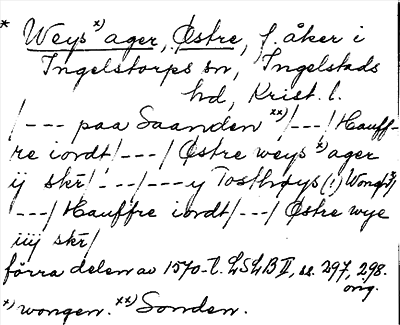 * Weys x) ager, Østre, f. åker i
Ingelstorps sn, Ingelstads
hd, Krist. l.
/--- paa Saanden xx)/---/ Hauff-
re iordt/---/ Østre weys x) ager
ij skr/---/---y Tosthøys (!) Wong x)/
---/ Hauffre iordt/---/ Østre wye
iiij skr/
förra delen av 1570-t. LSLB II, s. 297, 298.
orig.
x) wongen. xx) Sonden.